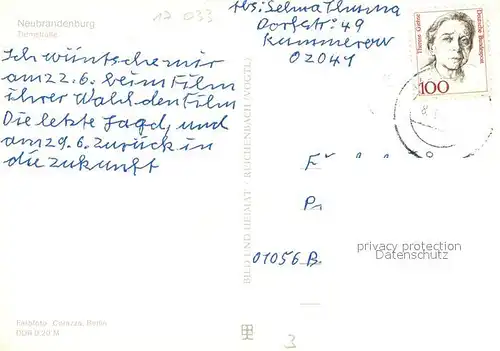 Neubrandenburg
12 033
Abs: Selma Thurma
Dorfstr: 49
Kummerow
02041
Ich wüntsche mir
am 22.6. beim Film
ihrer Wahl den Film
Die letzte Jagd, und
am 29.6. zurück in
die Zukunft
Therese Giehse
Deutsche Bundespost
100
8.
01056 B
privacy protection
Datenschutz
BILD UND HEIMAT · REICHENBACH (VOGTL)
Farbfoto: Berlin
DDR 0,20 M
3